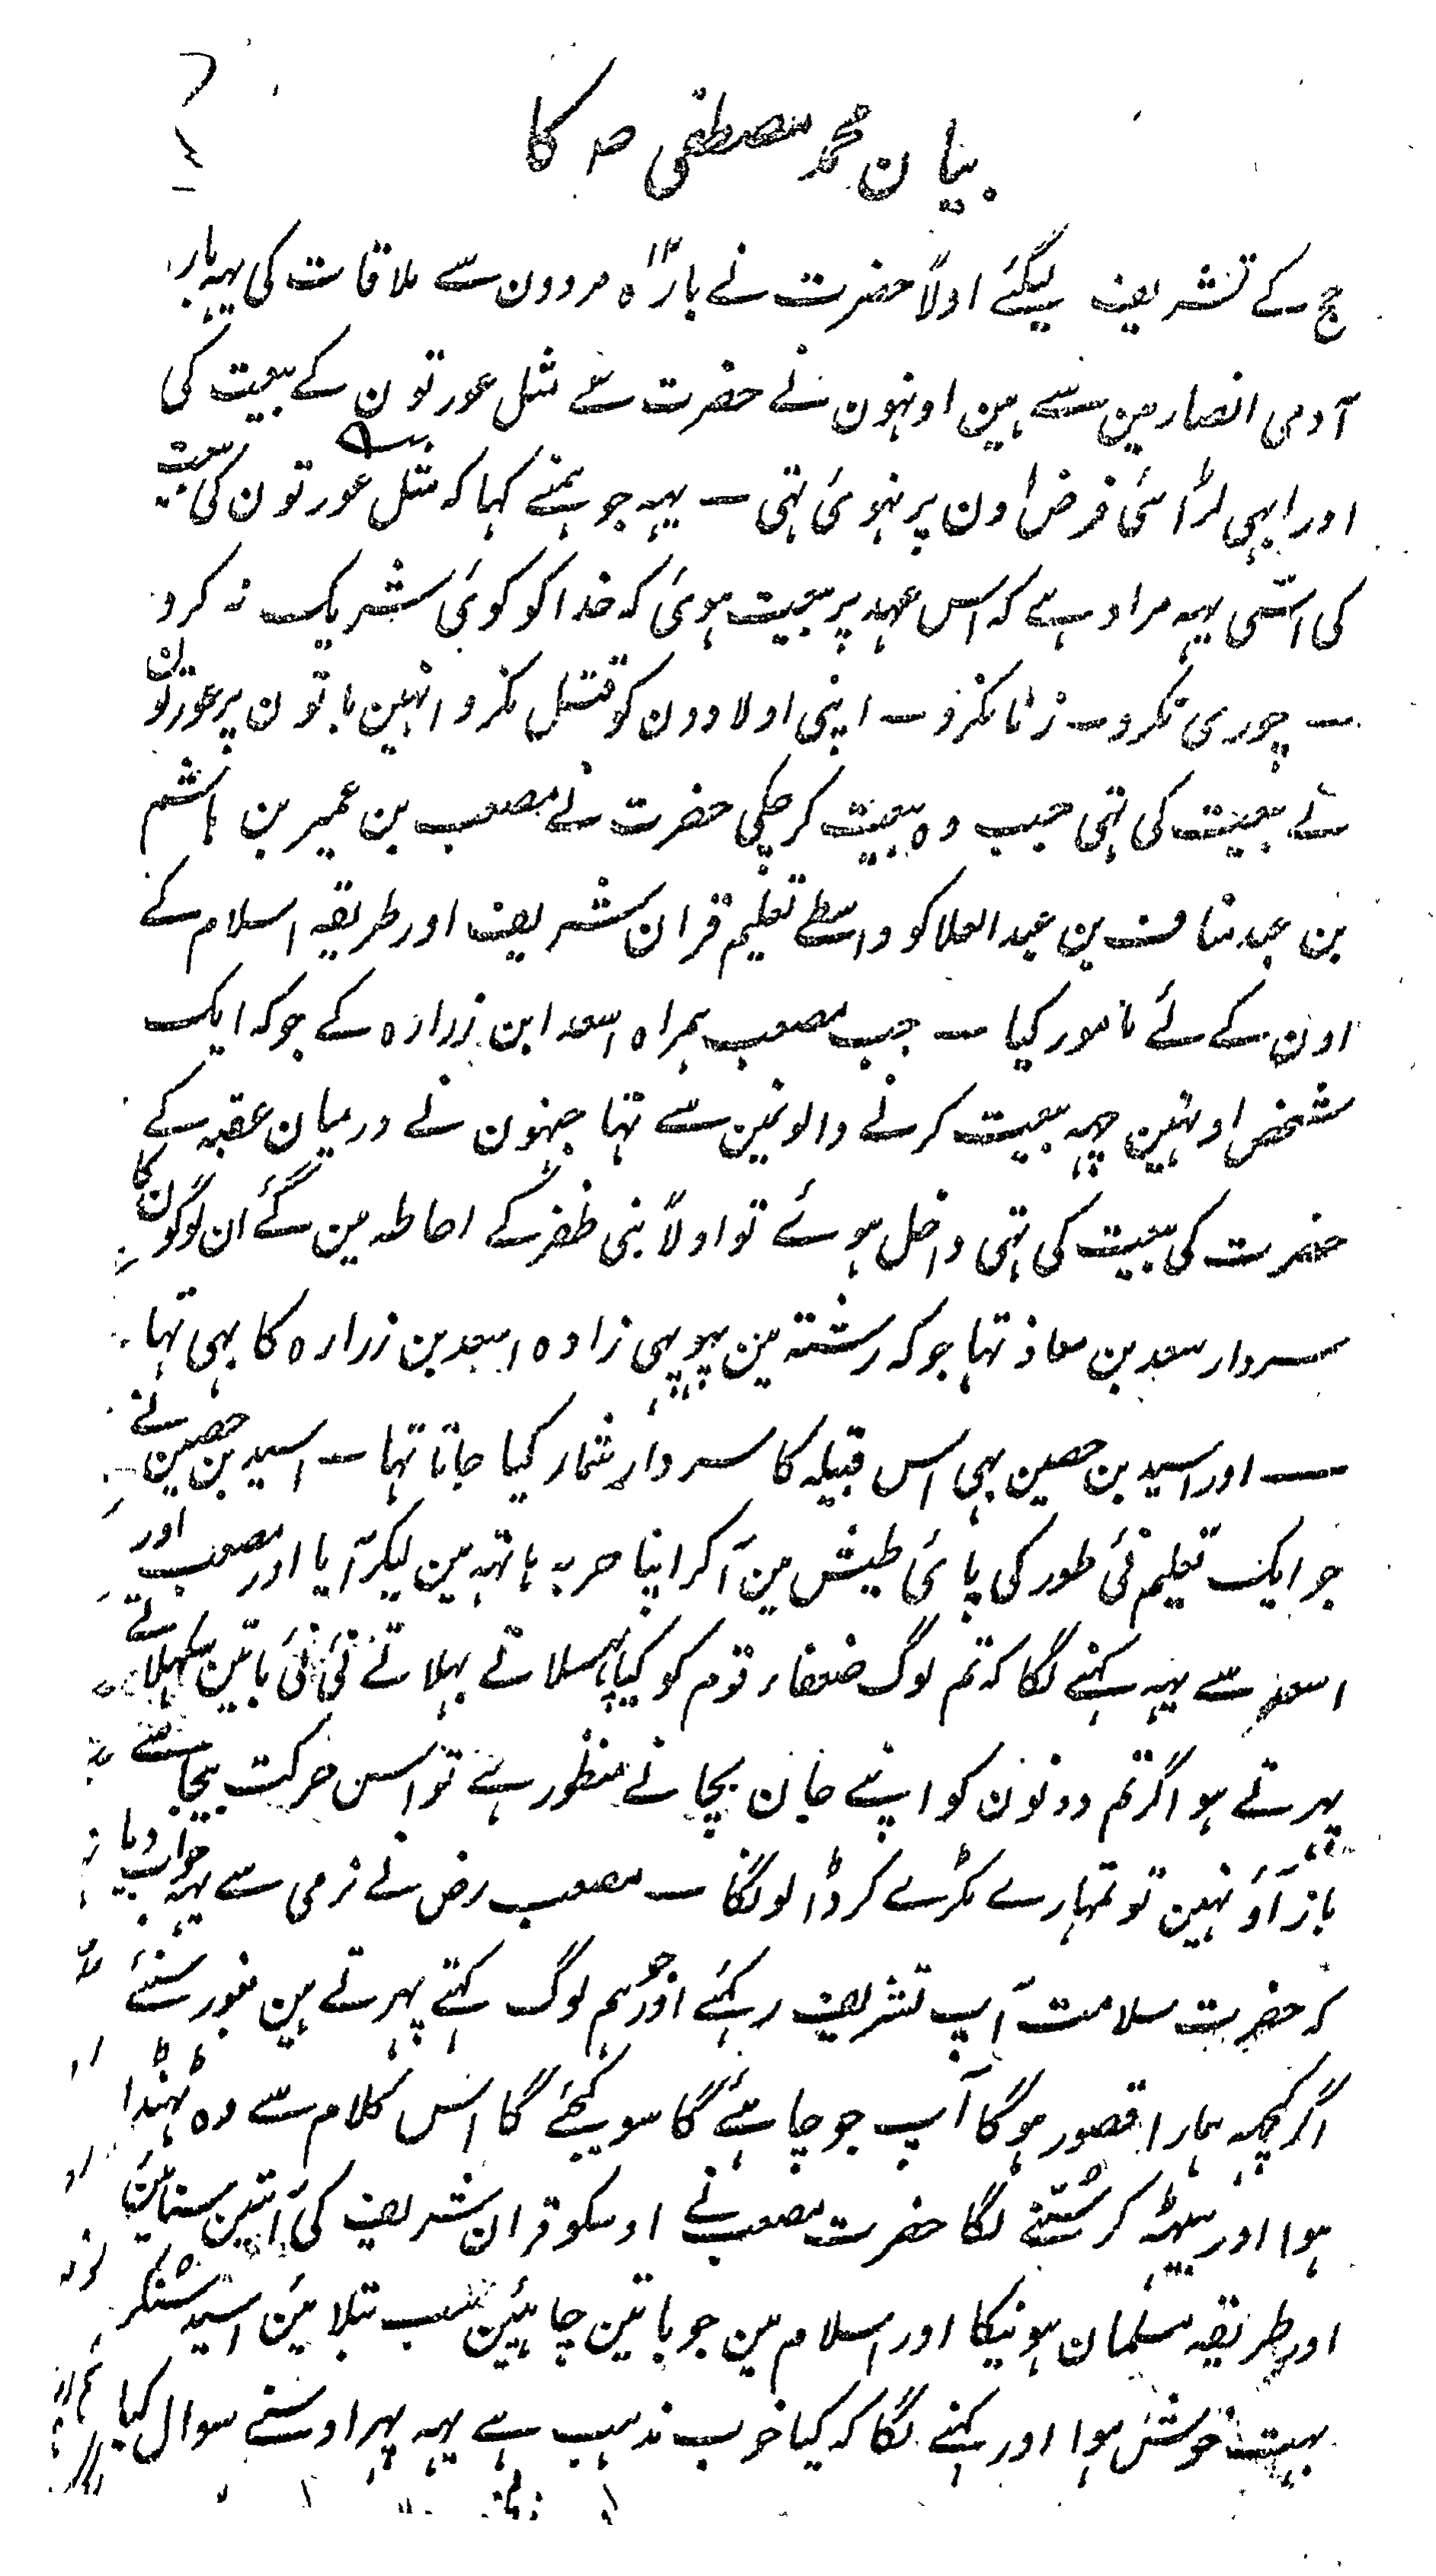 بیان محمد مصطفی ص کا
حج کے تشریف لیگئے اولاً حضرت نے بارہ ۱۲ مردون سے ملاقات کی یہہ بارہ
آدمی انصار مین سے ہین اونہون نے حضرت سے مثل عورتون کے بیعت کی
اور ابہی لڑائی فرض اون پر نہوئی تہی ۔ یہہ جو ہمنے کہا کہ مثل عورتون کی بیعت
کی اسّی یہہ مراد ہے کہ اس عہد پر بیعت ہوئی کہ خدا کو کوئی شریک نہ کرو
۔ چوری نکرو ۔ زنا نکرو ۔ اپنی اولادون کو قتل نکرو انہین باتون پر عورتون
نے بیعت کی تہی جب وہ بیعت کر چکی حضرت نے مصعب بن عمیر بن ہاشم
بن عبد مناف بن عبد العلا کو واسطے تعلیم قران شریف اور طریقہ اسلام کے
اون کے لئے مامور کیا ۔ جب مصعب ہمراہ اسعد ابن زرارہ کے جو کہ ایک
شخص اونہین چہہ بیعت کرنے والونمین سے تہا جنہون نے درمیان عقبہ کے
حضرت کی بیعت کی تہی داخل ہوئے تو اولاً بنی ظفر کے احاطہ مین گئے ان لوگون کا
سردار سعد بن معاذ تہا جو کہ رشتہ مین پہوپہی زادہ اسعد بن زرارہ کا بہی تہا
۔ اور اسید بن حصین بہی اس قبیلہ کا سردار شمار کیا جاتا تہا ۔ اسید بن حصین نے
جو ایک تعلیم نئی طور کی پائی طیش مین آکر اپنا حربہ ہاتہہ مین لیکر آیا اور مصعب اور
اسعد سے یہہ کہنے لگا کہ تم لوگ ضعفاء قوم کو کیا پہسلاتے بہلاتے نئی نئی باتین سکہلاتے
پہرتے ہو اگر تم دونون کو اپنے جان بچانے منظور ہے تو اس حرکت بیجا سے
باز آؤ نہین تو تمہارے ٹکڑے کر ڈالونگا ۔ مصعب رض نے نرمی سے یہہ جواب دیا
کہ حضرت سلامت آپ تشریف رکہئے اور جو ہم لوگ کہتے پہرتے ہین بغور سنئے
اگر کچہہ ہمارا قصور ہوگا آپ جو چاہئے گا سو کیجئے گا اس کلام سے وہ ٹہنڈا
ہوا اور بیٹہہ کر سُننے لگا حضرت مصعب نے اوسکو قران شریف کی آیتین سنائین
اور طریقہ مسلمان ہونیکا اور اسلام مین جو باتین چاہئین سب بتلائین اسید سُنکر
بہت خوش ہوا اور کہنے لگا کہ کیا خوب مذہب ہے یہہ پہر اوسنے سوال کیا